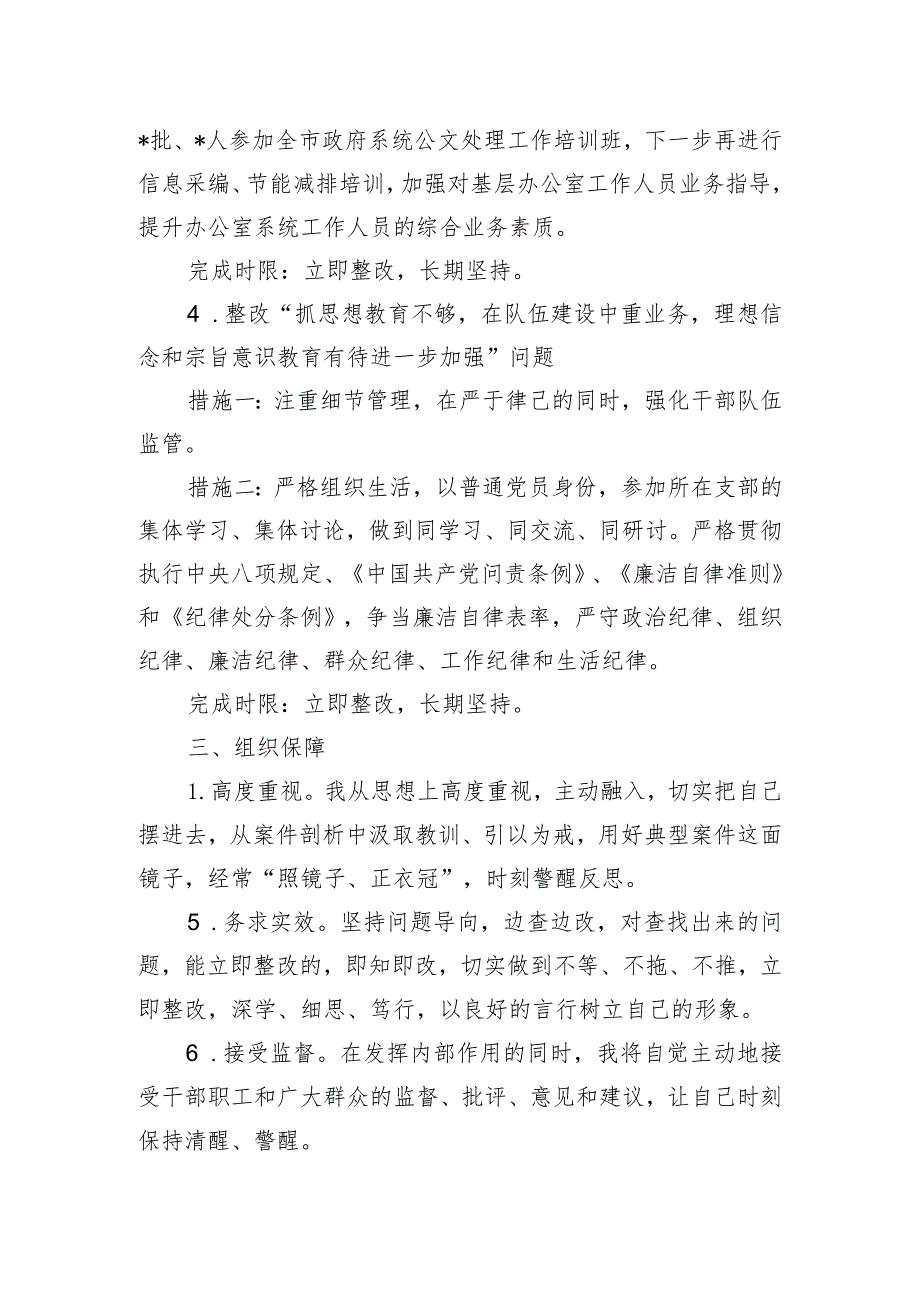 *批、*人参加全市政府系统公文处理工作培训班，下一步再进行
信息采编、节能减排培训，加强对基层办公室工作人员业务指导，
提升办公室系统工作人员的综合业务素质。
完成时限：立即整改，长期坚持。
4 .整改“抓思想教育不够，在队伍建设中重业务，理想信
念和宗旨意识教育有待进一步加强”问题
措施一：注重细节管理，在严于律己的同时，强化干部队伍
监管。
措施二：严格组织生活，以普通党员身份，参加所在支部的
集体学习、集体讨论，做到同学习、同交流、同研讨。严格贯彻
执行中央八项规定、《中国共产党问责条例》、《廉洁自律准则》
和《纪律处分条例》，争当廉洁自律表率，严守政治纪律、组织
纪律、廉洁纪律、群众纪律、工作纪律和生活纪律。
完成时限：立即整改，长期坚持。
三、组织保障
1.高度重视。我从思想上高度重视，主动融入，切实把自己
摆进去，从案件剖析中汲取教训、引以为戒，用好典型案件这面
镜子，经常“照镜子、正衣冠”，时刻警醒反思。
5 .务求实效。坚持问题导向，边查边改，对查找出来的问
题，能立即整改的，即知即改，切实做到不等、不拖、不推，立
即整改，深学、细思、笃行，以良好的言行树立自己的形象。
6 .接受监督。在发挥内部作用的同时，我将自觉主动地接
受干部职工和广大群众的监督、批评、意见和建议，让自己时刻
保持清醒、警醒。